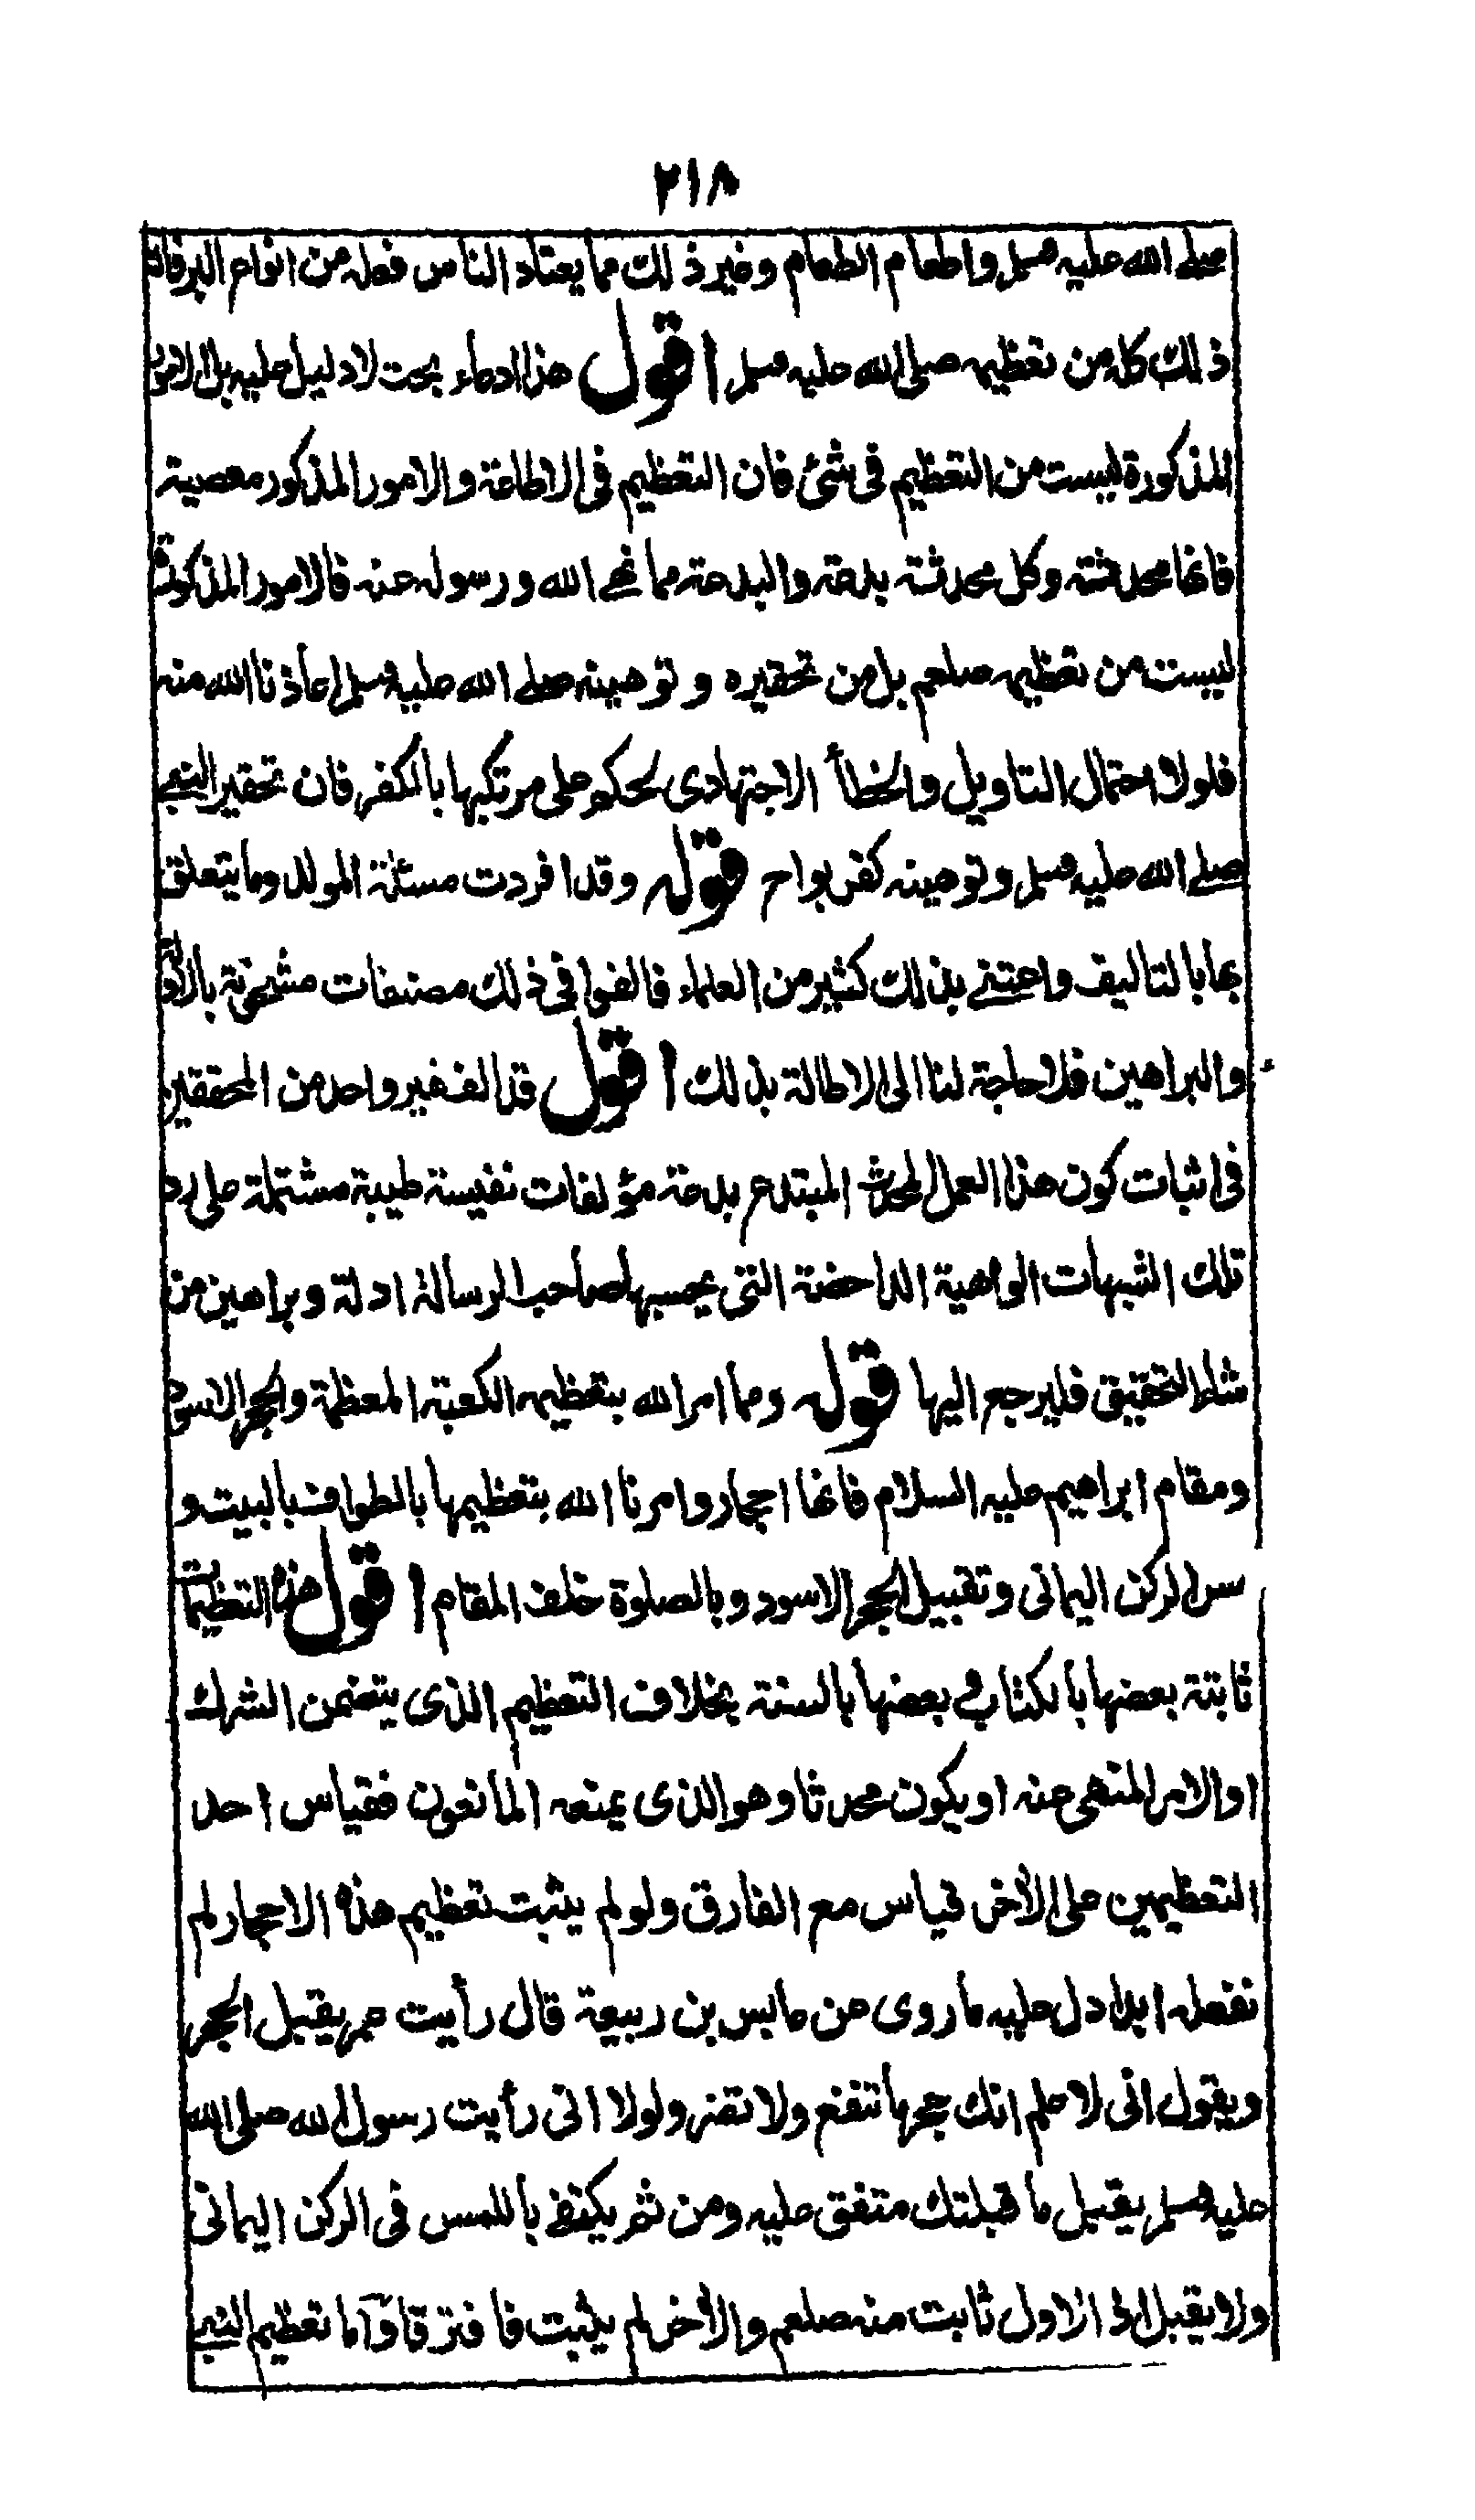 ٢١٨
صلى الله عليه وسلم واطعام الطعام وغير ذلك مما يعتاد الناس فعله من انواع البر فان
ذلك كله من تعظيمه صلى الله عليه وسلم اقول هذا ادعاء بحت لا دليل عليه بل الامور
المذكورة ليست من التعظيم فى شئ فان التعظيم فى الاطاعة والامور المذكور معصية
فانها محدثة وكل محدثة بدعة والبدعة مما نهى الله ورسوله عنه فالامور المذكورة
ليست من تعظيمه صلعم بل من تحقيره وتوهينه صلى الله عليه وسلم اعاذنا الله منه
فلولا احتمال التاويل والخطأ الاجتهادى لحكم على مرتكبها بالكفر فان تحقير النبى
صلى الله عليه وسلم وتوهينه كفر بواح قوله وقد افردت مسئلة المولد وما يتعلق
بها بالتاليف واعتنى بذلك كثير من العلماء فالفوا فى ذلك مصنفات مشحونة بالادلة
والبراهين فلا حاجة لنا الى الاطالة بذلك اقول قد الف غير واحد من المحققين
فى اثبات كون هذا العمل المحدث المبتدع بدعة مؤلفات نفيسة طيبة مشتملة على رد
تلك الشبهات الواهية الداحضة التى يحسبها صاحب الرسالة ادلة وبراهين من
شاط التحقيق فليرجع اليها قوله ومما امر الله بتعظيمه الكعبة المعظمة والحجر الاسود
ومقام ابراهيم عليه السلام فانها احجار وامرنا الله بتعظيمها بالطواف بالبيت و
مس الركن اليمانى وتقبيل الحجر الاسود وبالصلوة خلف المقام اقول هذه التعظيمات
ثابتة بعضها بالكتاب وبعضها بالسنة بخلاف التعظيم الذى يتضمن الشرك
اوالامر المنهى عنه او يكون محدثا وهو الذى يمنعه المانعون فقياس احد
التعظيمين على الأخر قياس مع الفارق ولو لم يثبت تعظيم هذه الاحجار لم
نفعله ابدا دل عليه ما روى عن عابس بن ربيعة قال رأيت عمر يقبل الحجر
ويقول انى لاعلم انك حجر ما تنفع ولا تضر ولولا انى رأيت رسول الله صلى الله
عليه وسلم يقبل ما قبلتك متفق عليه ومن ثم يكتفى باللمس فى الركن اليمانى
ولا يقبل اذ الاول ثابت منه صلعم والأخر لم يثبت فافترقا وأما تعظيم النبى